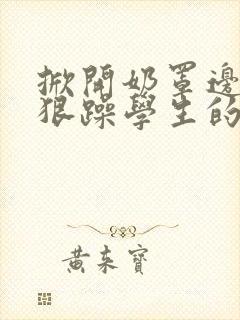 掀開奶罩邊
狠躁學生的
黄来寶